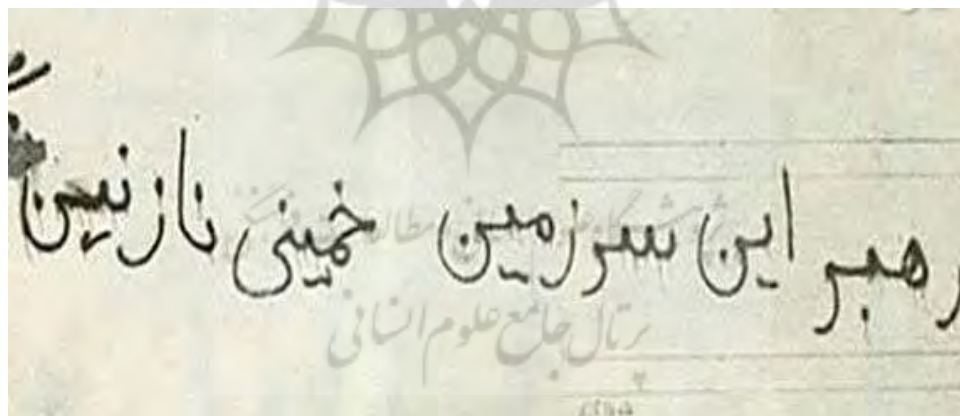 رهبر این سرزمین خمینی نازنین
پرتال جامع علوم انسانی